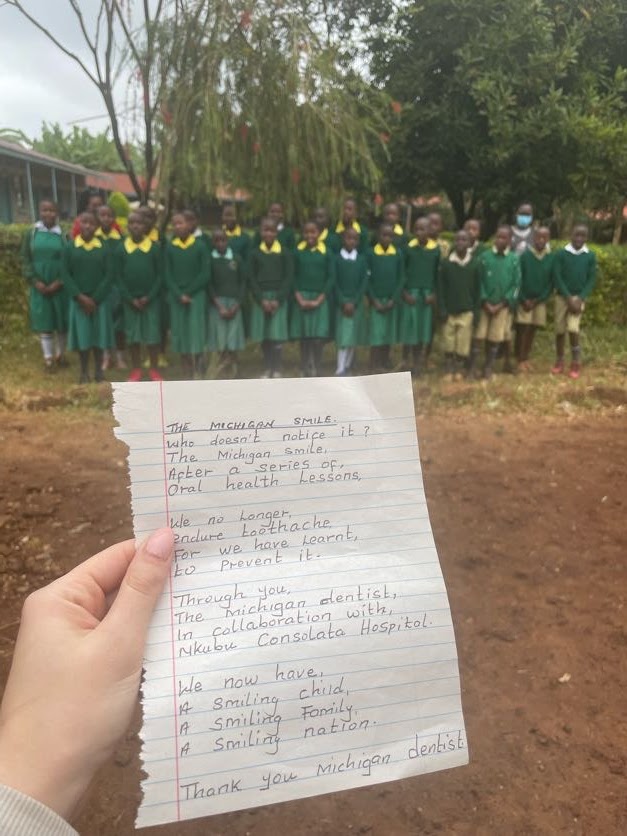 THE MICHIGAN SMILE.
Who doesn't notice it?
The Michigan smile,
After a series of,
Oral health Lessons,
We no Longer,
endure toothache
For we have Learnt,
to prevent it.
Through you,
The Michigan dentist,
In collaboration with,
Nkubu Consolata Hospital.
We now have,
A smiling child,
A smiling Family,
A smiling nation.
Thank you Michigan dentist